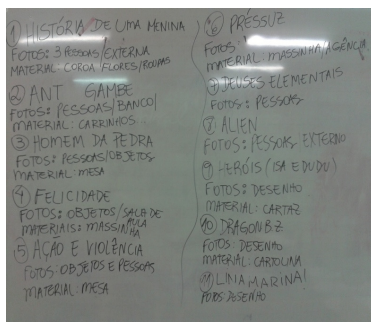 ① HISTÓRIA DE UMA MENINA
FOTOS: 3 PESSOAS/EXTERNA
MATERIAL: COROA FLORES/ROUPAS
② ANT GAMBE
FOTOS: PESSOAS/BANCO/
MATERIAL: CARRINHOS...
③ HOMEM DA PEDRA
FOTOS: PESSOAS/OBJETOS
MATERIAL: MESA
④ FELICIDADE
FOTOS: OBJETOS/SALA DE AULA
MATERIAIS: MASSINHA
⑤ AÇÃO E VIOLÊNCIA
FOTOS: OBJETOS E PESSOAS
MATERIAL: MESA
⑥ PRÉSSUZ
FOTOS:
MATERIAL: MASSINHA/AGÊNCIA
⑦ DEUSES ELEMENTAIS
FOTOS: PESSOAS
⑧ ALIEN
FOTOS: PESSOAS EXTERNO
⑨ HERÓIS (ISA E DUDU)
FOTOS: DESENHO
MATERIAL: CARTAZ
⑩ DRAGON B.Z
FOTOS: DESENHO
MATERIAL: CARTOLINA
⑪ LINA MARINA!
FOTOS DESENHO